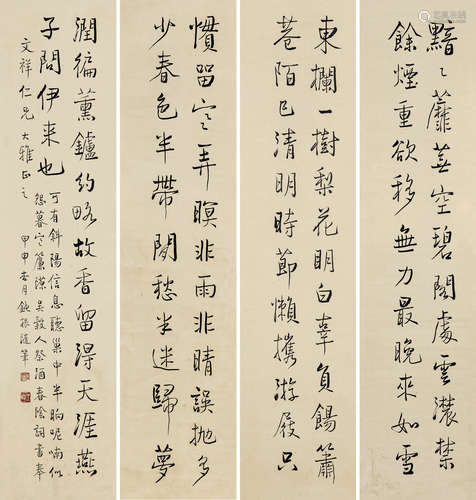 黯〻蘼蕪空碧閣處雲濃禁
餘煙重欲移無力最晚來如雪
東欄一樹梨花明白辜負餳簫
巷陌已清明時節懶攜游屐只
慣留寒弄暝非雨非晴誤拋多
少春色半帶閒愁半迷歸夢
潤徧薰鑪約略故香留得天涯燕
子問伊来也
可有斜陽信息聽巢中半晌呢喃似
怨暮寒簾隙吳穀人祭酒春陰詞書奉
文祥仁兄大雅正之 甲申月振隨筆